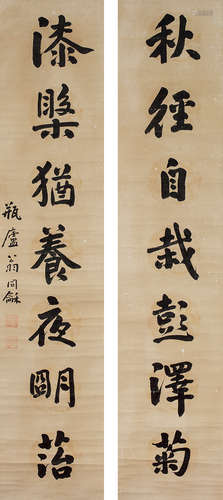 秋徑自栽彭澤菊
漆槃猶養夜朙萡
瓶廬翁同龢